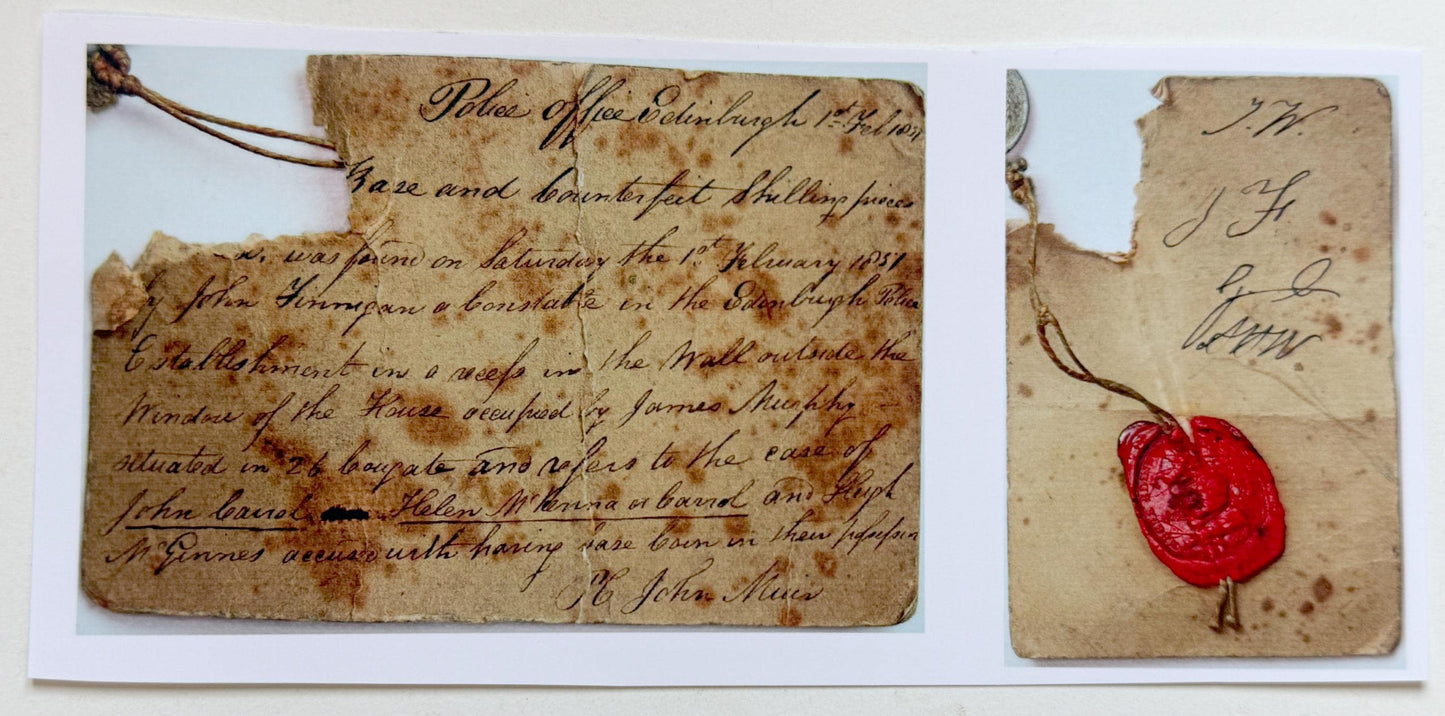 Police Office Edinburgh 1st Feb 1851
Base and Counterfeit Shilling pieces
was found on Saturday the 1st February 1851
by John Finnigan a Constable in the Edinburgh Police
Establishment in a recess in the Wall outside the
Window of the House occupied by James Murphy
situated in 26 Cowgate and refers to the case of
John Cairol Helen McKenna or Cairol and Hugh
McGinnes accused with having base Coin in their possession
John Muir
J. W.
J F